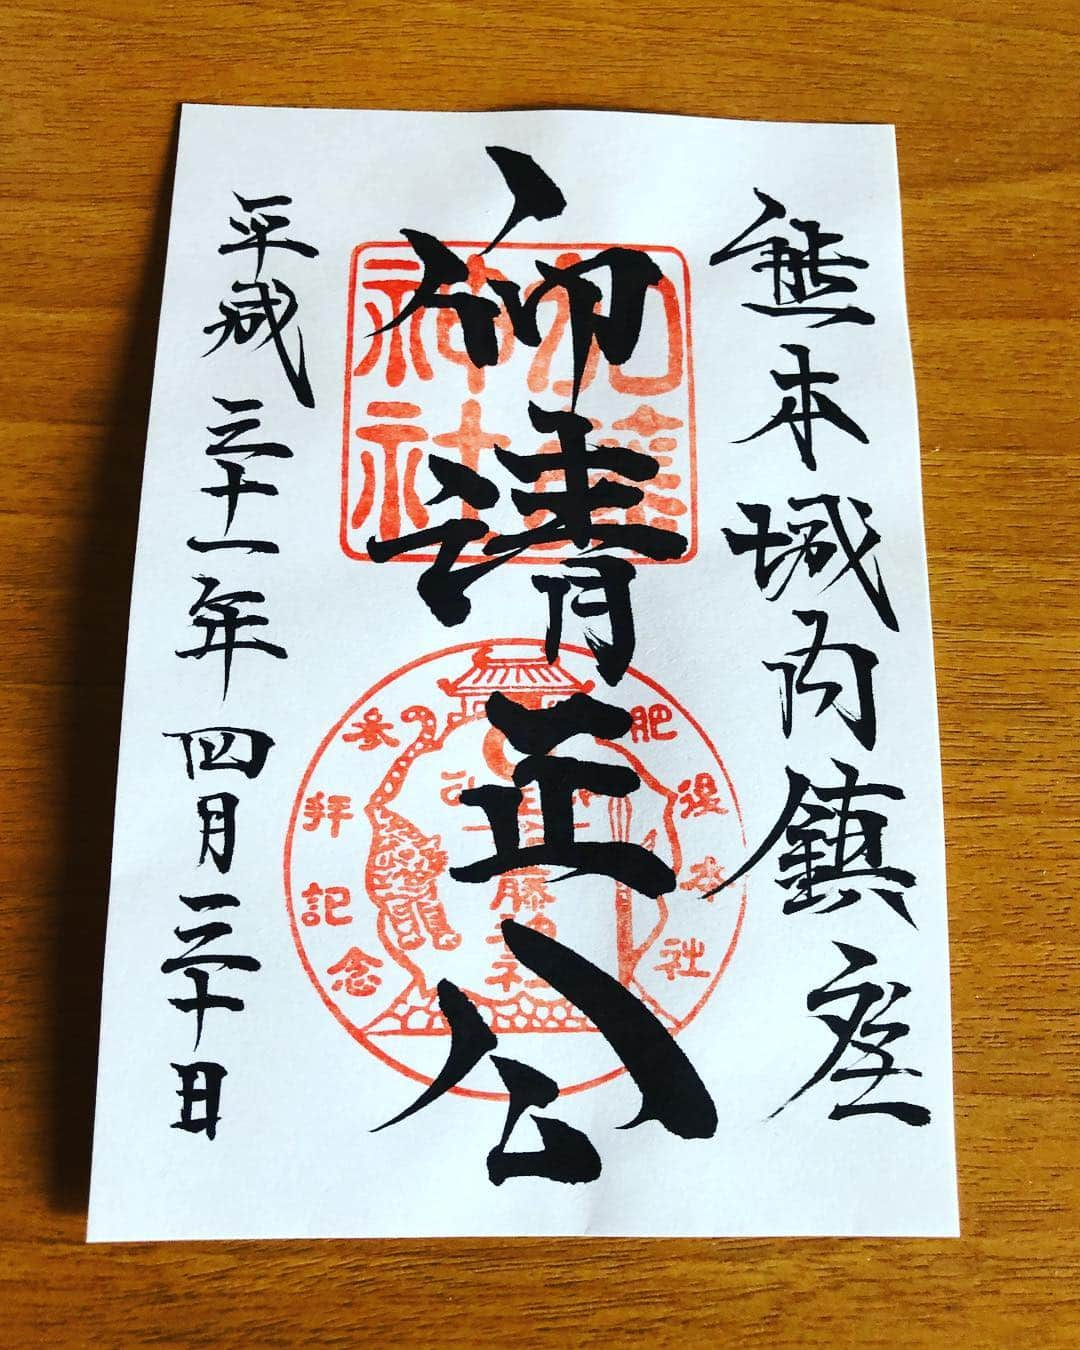 熊本城内鎮座
仰清正公
平成三十一年四月三十日
加藤神社
肥後本社
参拝記念